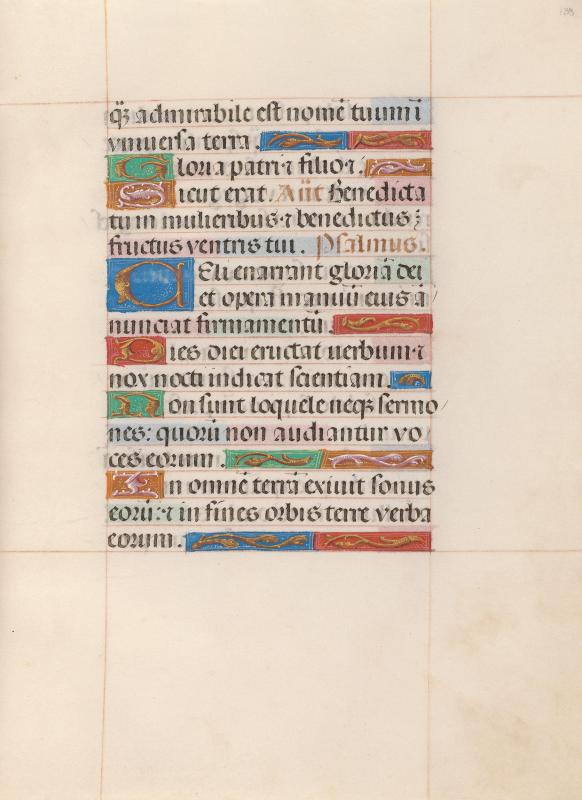 qȝ admirabile est nomē tuum ī
vniuersa terra.
Gloria patri ⁊ filio ⁊.
Sicut erat. Añt Benedicta
tu in mulieribus ⁊ benedictus
fructus ventris tui. Psalmus.
Celi enarrant gloriā dei
et opera manuū eius ā
nunciat firmamentū.
Dies diei eructat uerbum ⁊
nox nocti indicat scientiam.
Non sunt loquele neqȝ sermo
nes: quorū non audiantur vo
ces eorum.
In omnē terrā exiuit sonus
eorū: ⁊ in fines orbis terre verba
eorum.